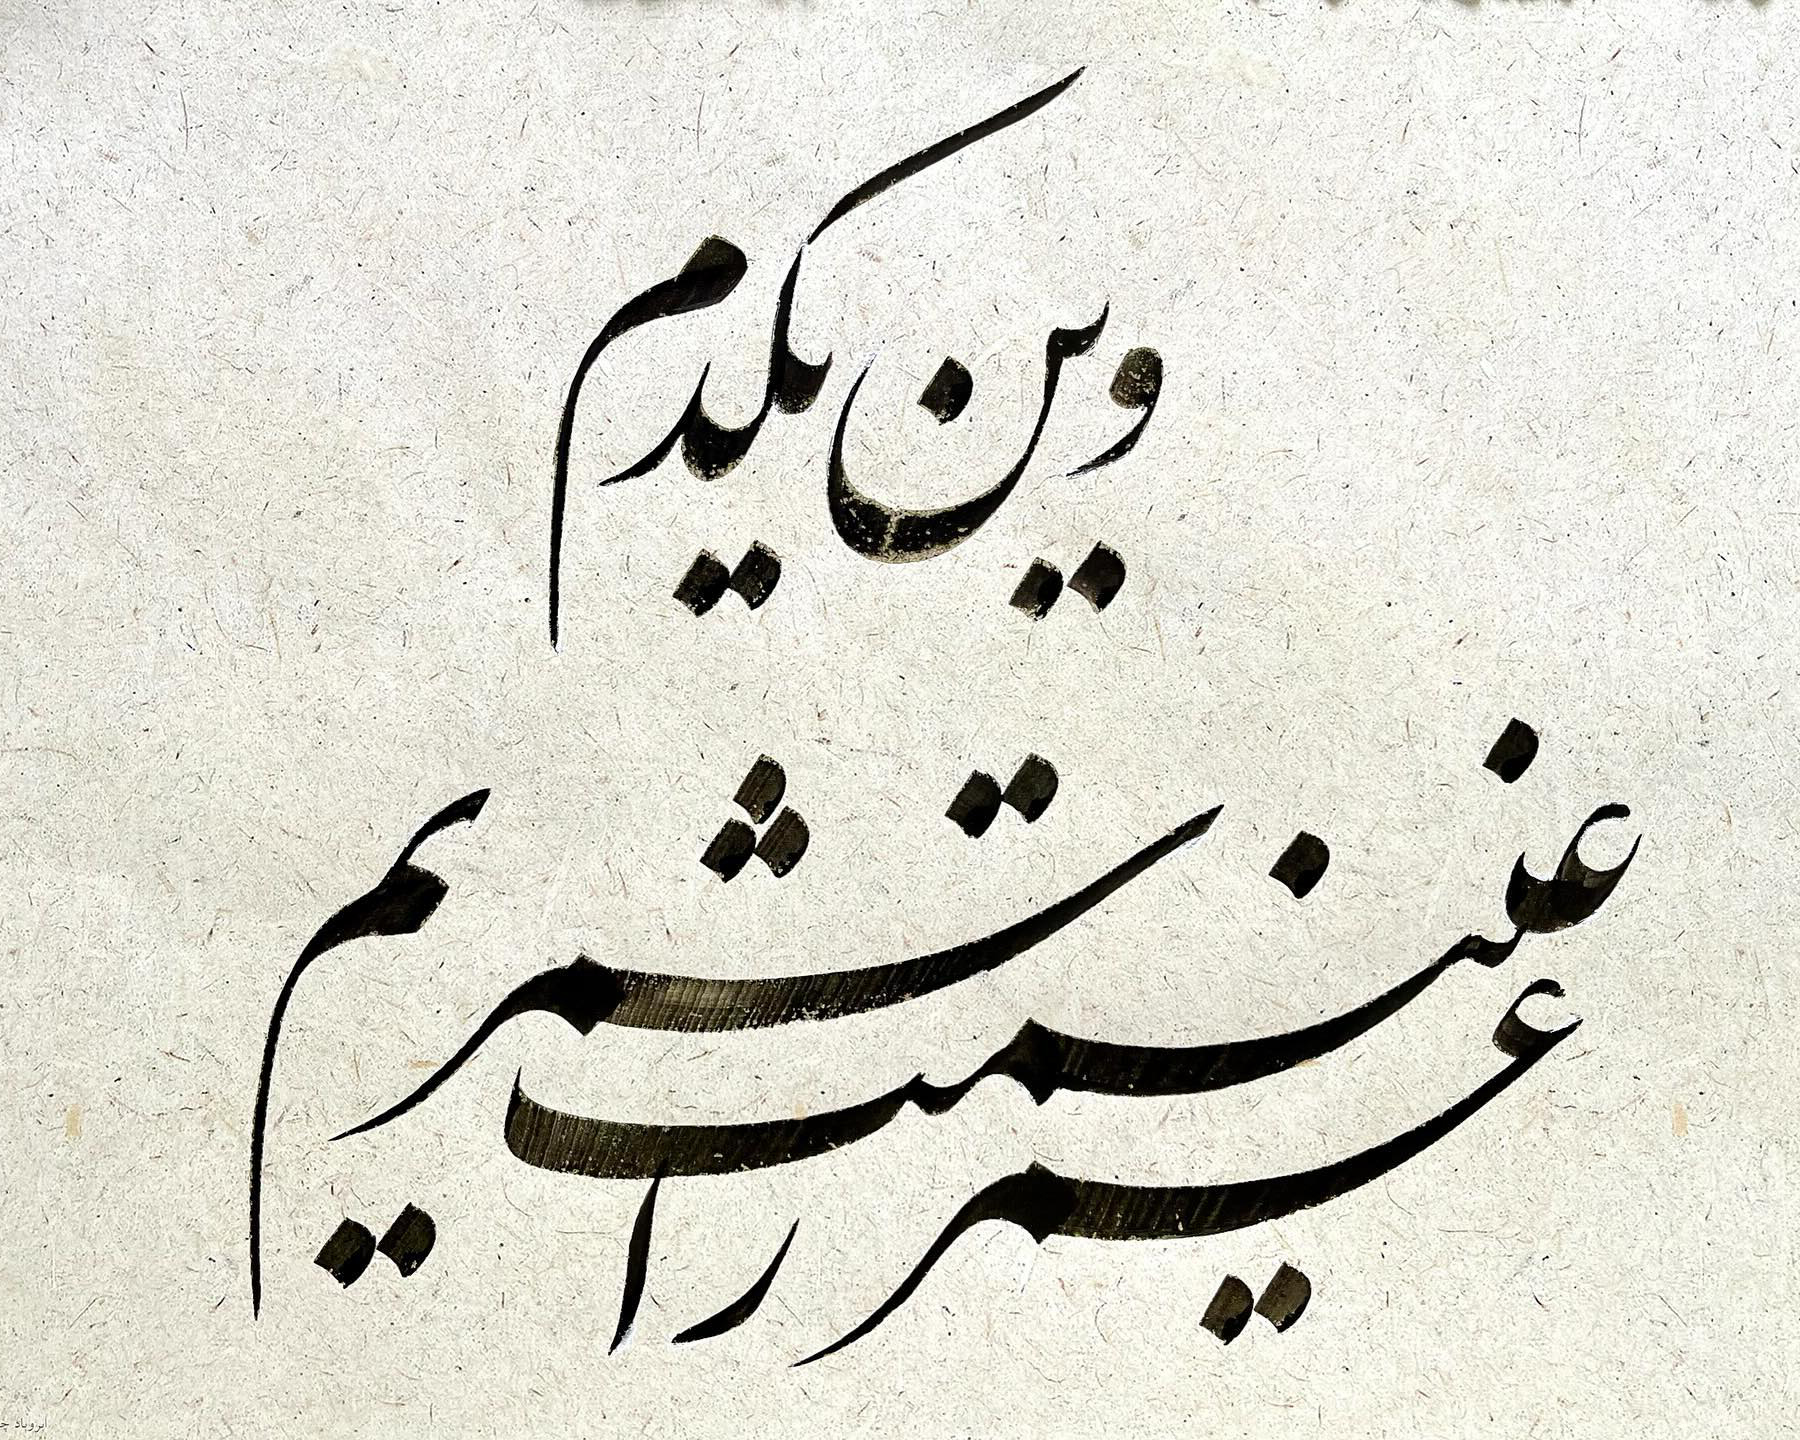 وین یکدم
عمر را
غنیمت شمریم
ابروباد